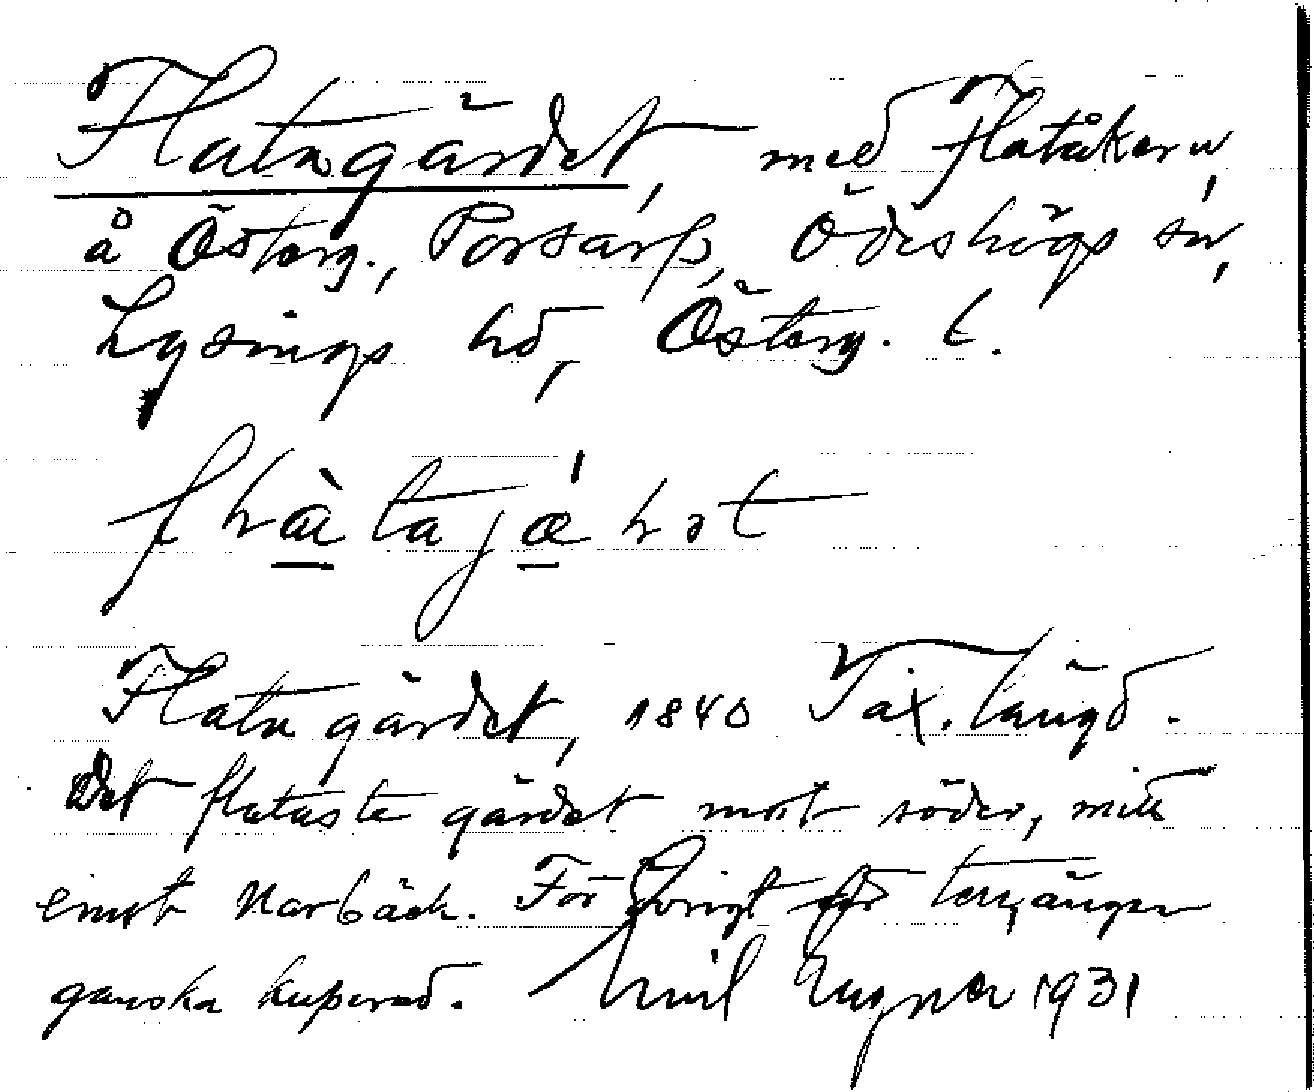 Flatugärdet, med Flatåkern,
å Österg., Porsarp, Ödeshögs sn,
Lysings hd, Österg. l.
Flatugärdet, 1840 Tax. längd.
Det flataste gärdet mot söder, mitt
emot Narbäck. För övrigt är terrängen
ganska kuperad. Emil 1931